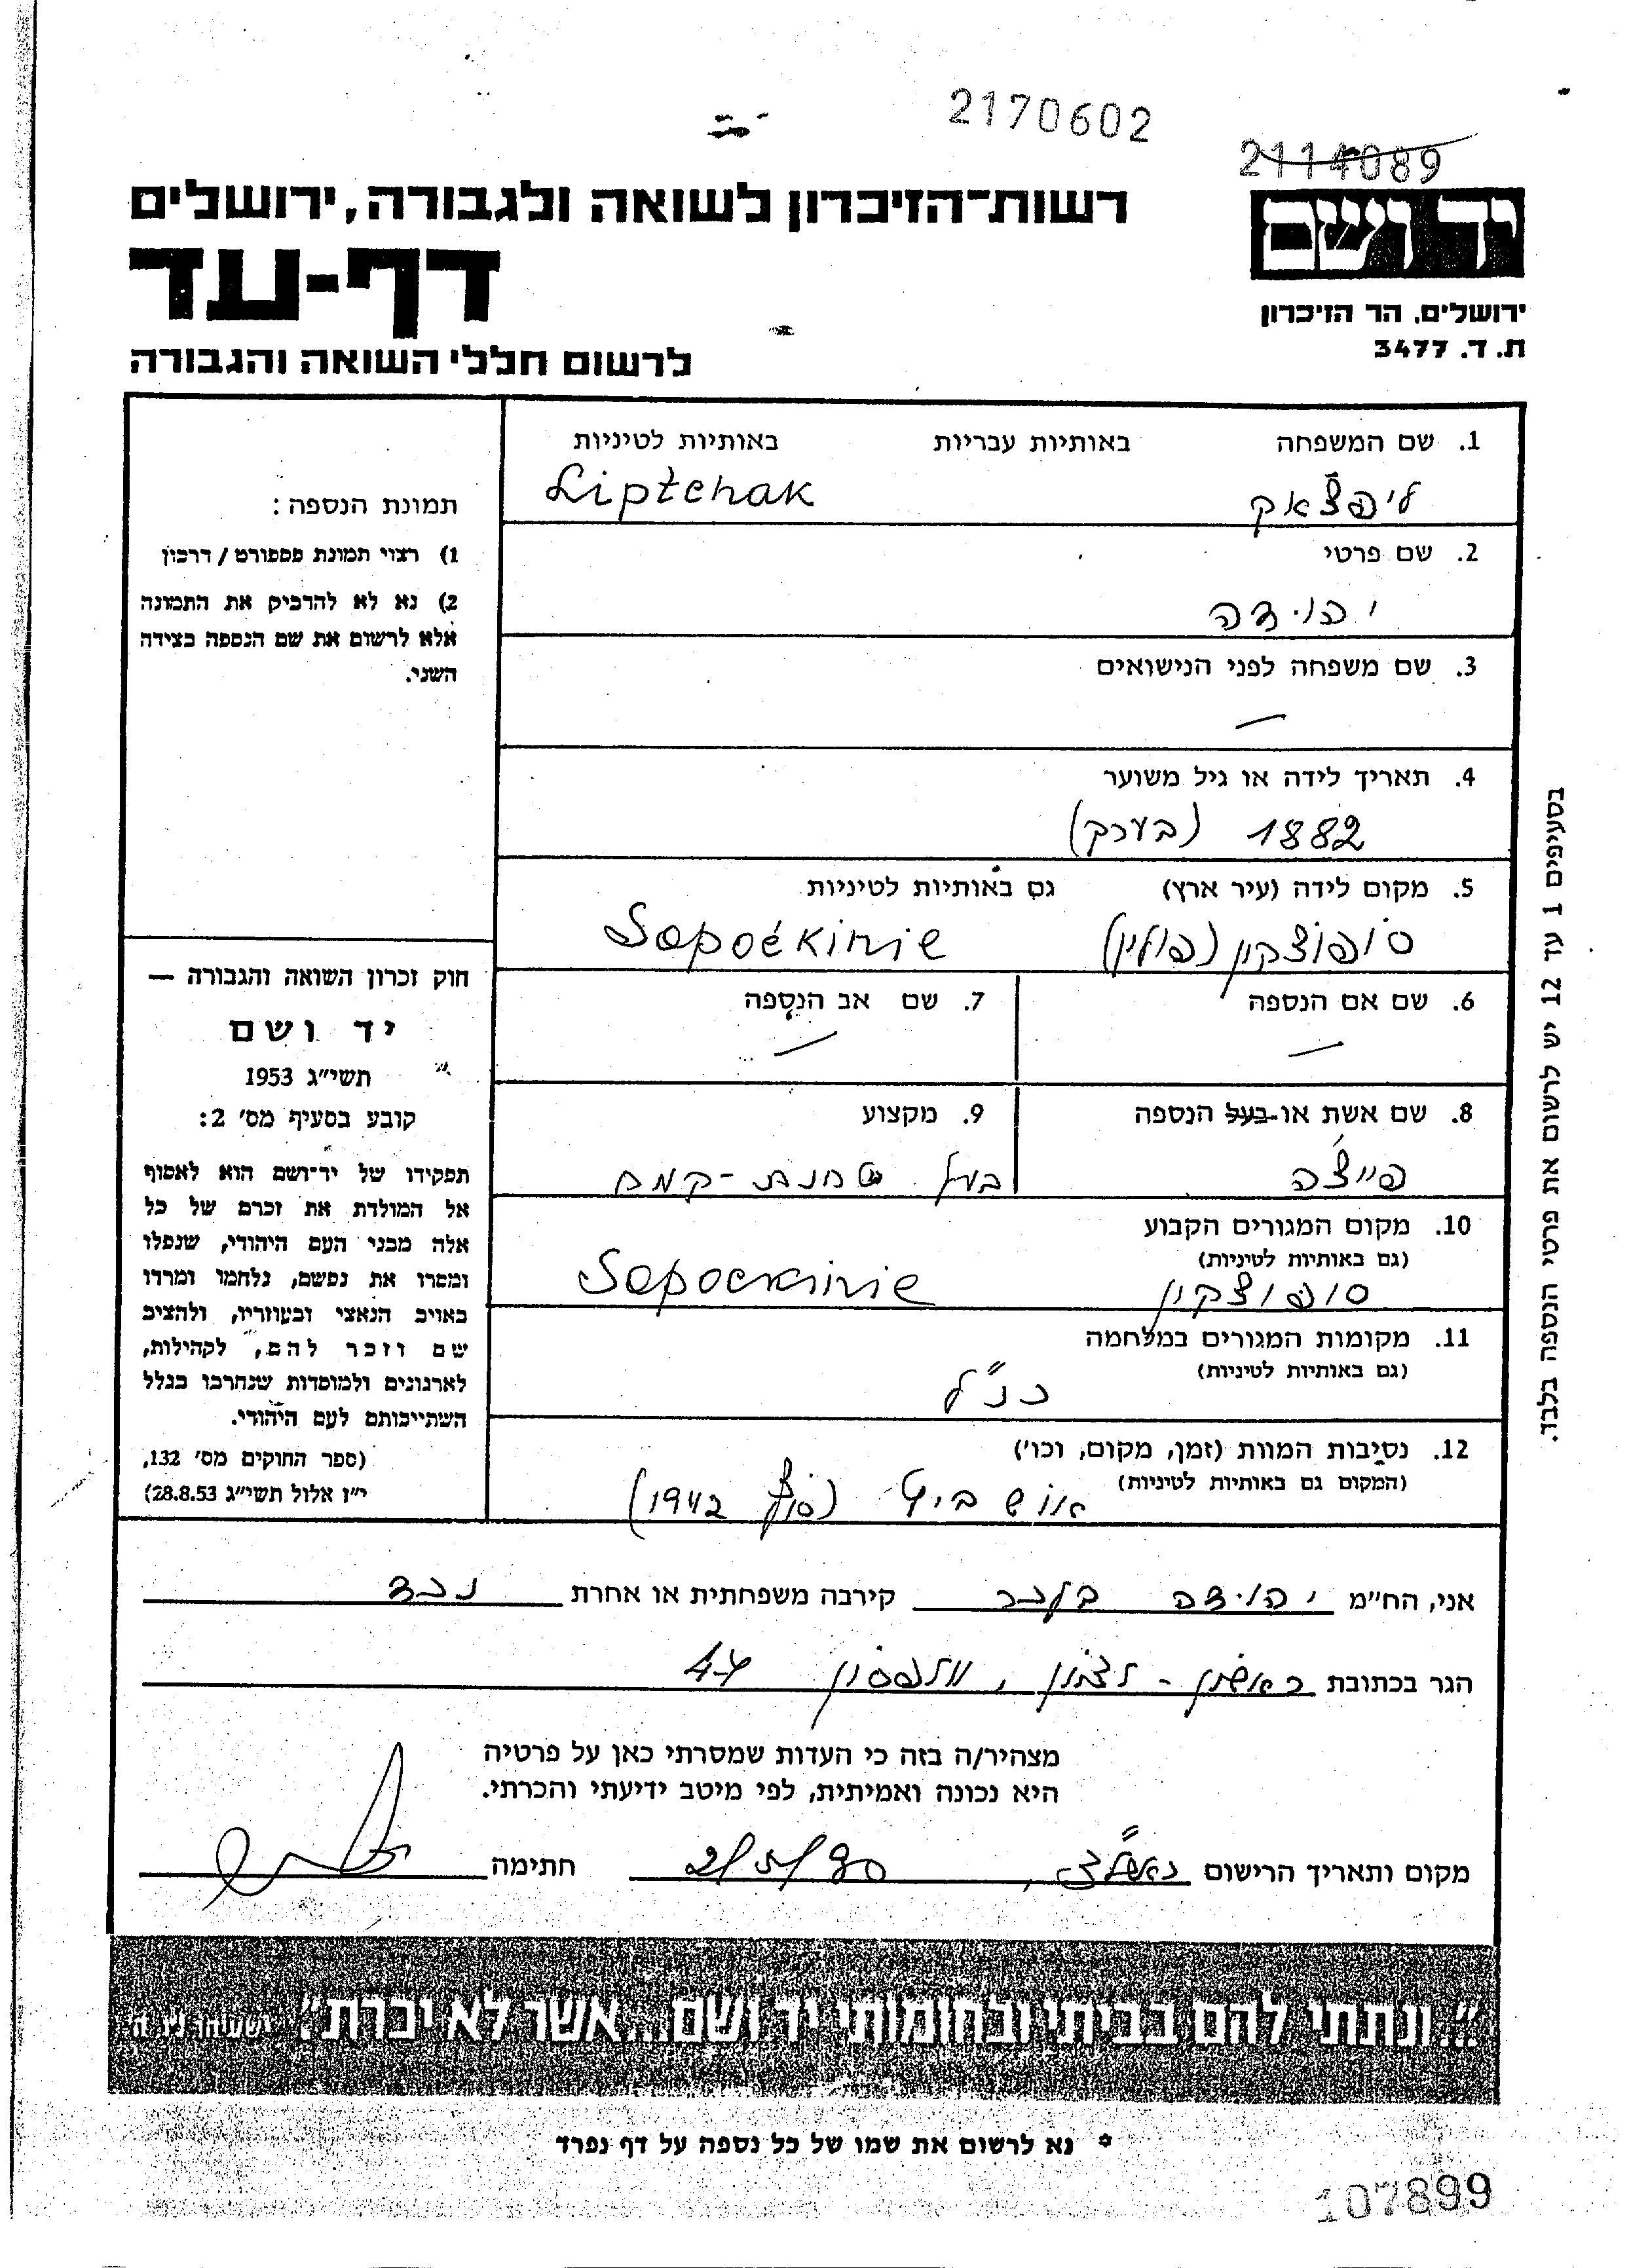 2170602
2114089
רשות-הזיכרון לשואה ולגבורה, ירושלים
יד ושם
דף-עד
ירושלים, הר הזיכרון
ת. ד. 3477
לרשום חללי השואה והגבורה
1. שם המשפחה באותיות עבריות באותיות לטיניות
ליפצ'אק Liptchak
2. שם פרטי
יהודה
3. שם משפחה לפני הנישואים
—
4. תאריך לידה או גיל משוער
1882 (בערך)
5. מקום לידה (עיר ארץ) גם באותיות לטיניות
סופוצקין (פולין) Sopoćkinie
6. שם אם הנספה 7. שם אב הנספה
— —
8. שם אשת או בעל הנספה 9. מקצוע
פייצ'ה בעל טחנת-קמח
10. מקום המגורים הקבוע
(גם באותיות לטיניות)
סופוצקין Sopockinie
11. מקומות המגורים במלחמה
(גם באותיות לטיניות)
כנ"ל
12. נסיבות המוות (זמן, מקום, וכו')
(המקום גם באותיות לטיניות)
אושביץ (סוף 1942)
תמונת הנספה:
1) רצוי תמונת פספורט / דרכון
2) נא לא להדביק את התמונה
אלא לרשום את שם הנספה בצידה
השני.
חוק זכרון השואה והגבורה —
יד ושם
תשי"ג 1953
קובע בסעיף מס' 2:
תפקידו של יד-ושם הוא לאסוף
אל המולדת את זכרם של כל
אלה מבני העם היהודי, שנפלו
ומסרו את נפשם, נלחמו ומרדו
באויב הנאצי ובעוזריו, ולהציב
שם וזכר להם, לקהילות,
לארגונים ולמוסדות שנחרבו בגלל
השתייכותם לעם היהודי.
(ספר החוקים מס' 132,
י"ז אלול תשי"ג 28.8.53)
בסעיפים 1 עד 12 יש לרשום את פרטי הנספה בלבד.
אני, הח"מ יהודה קירבה משפחתית או אחרת נכד
הגר בכתובת ראשון-לציון, וולפסון 44
מצהיר/ה בזה כי העדות שמסרתי כאן על פרטיה
היא נכונה ואמיתית, לפי מיטב ידיעתי והכרתי.
מקום ותאריך הרישום ראשל"צ, 2/5/90 חתימה
"...ונתתי להם בביתי ובחומותי יד ושם... אשר לא יכרת" ישעיהו נ"ו ה
* נא לרשום את שמו של כל נספה על דף נפרד
107899